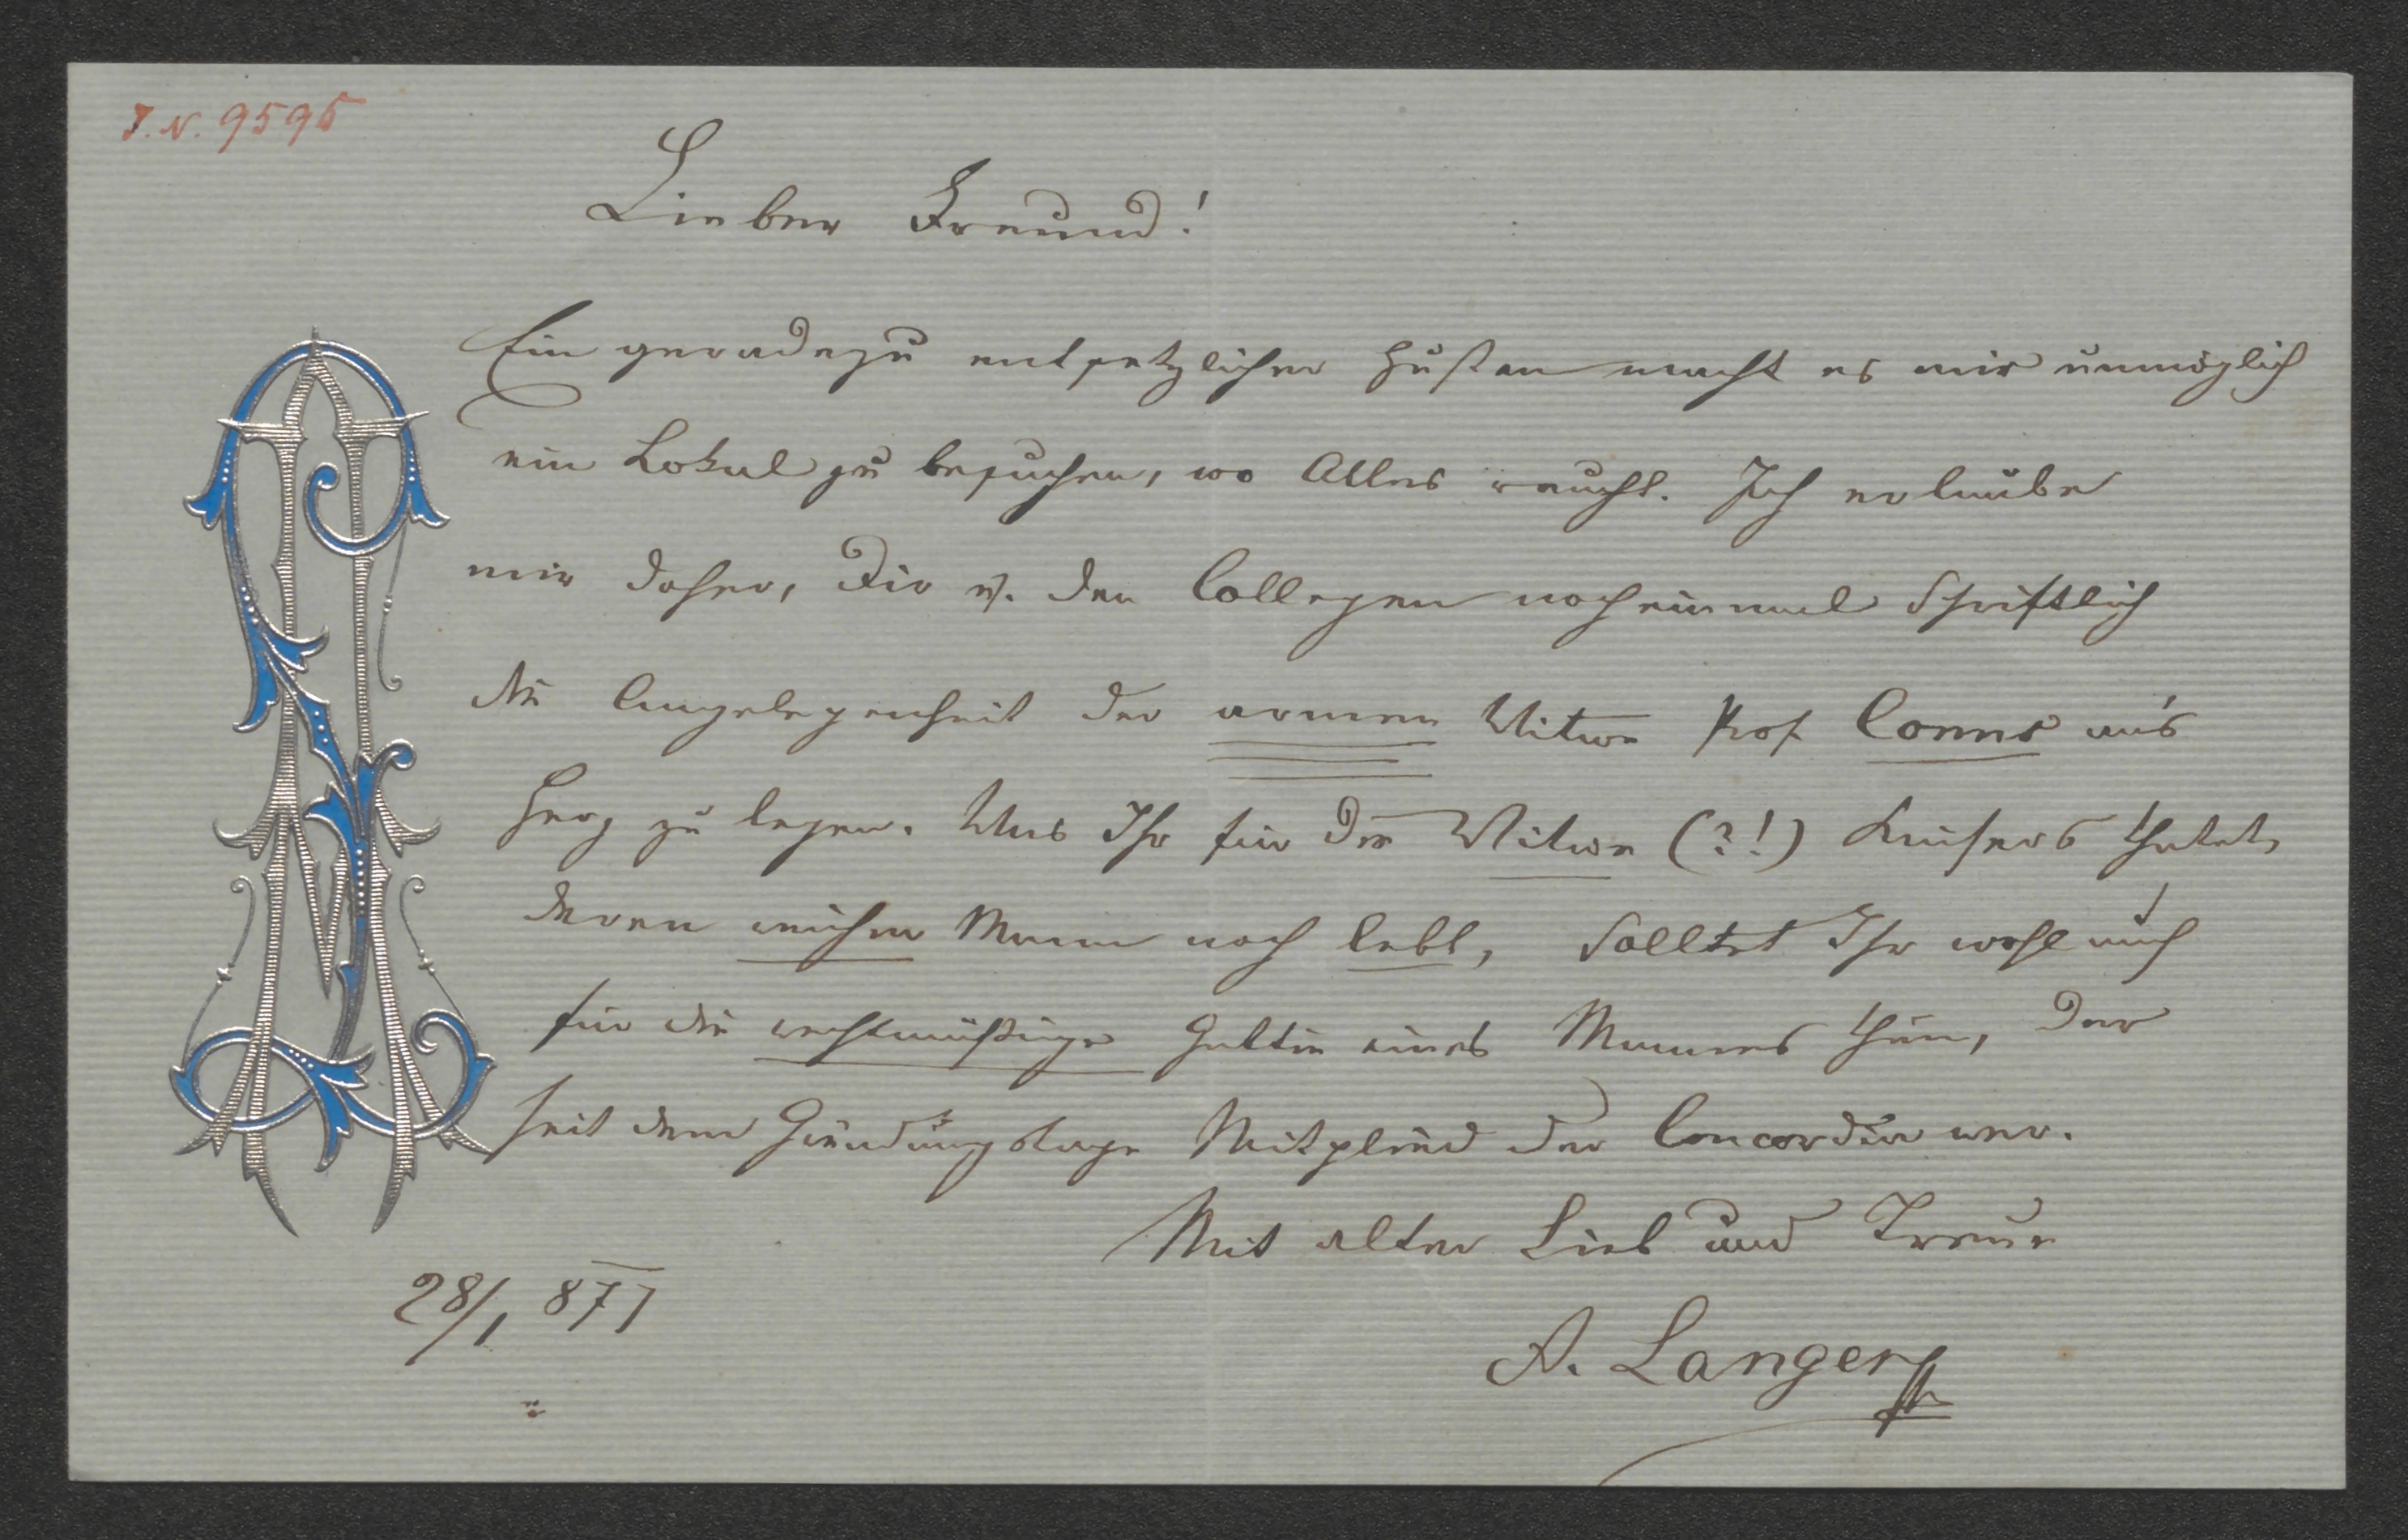 I. N. 9595
Lieber Freund!
Ein geradezu entsetzlicher Husten macht es mir unmöglich
ein Lokal zu besuchen, wo Alles raucht. Ich erlaube
mir daher, Dir u. den Collegen noch einmal schriftlich
die Angelegenheit der armen Witwe Prof Conns an's
Herz zu legen. Was Ihr für die Witwe (?!) Kaisers thatet,
deren reicher Mann noch lebt, solltet Ihr wohl auch
für die rechtmäßige Gattin eines Mannes thun, der
seit dem Gründungstage Mitglied der Concordia war.
Mit alter Lieb und Treue
28/1 877
A. Langer